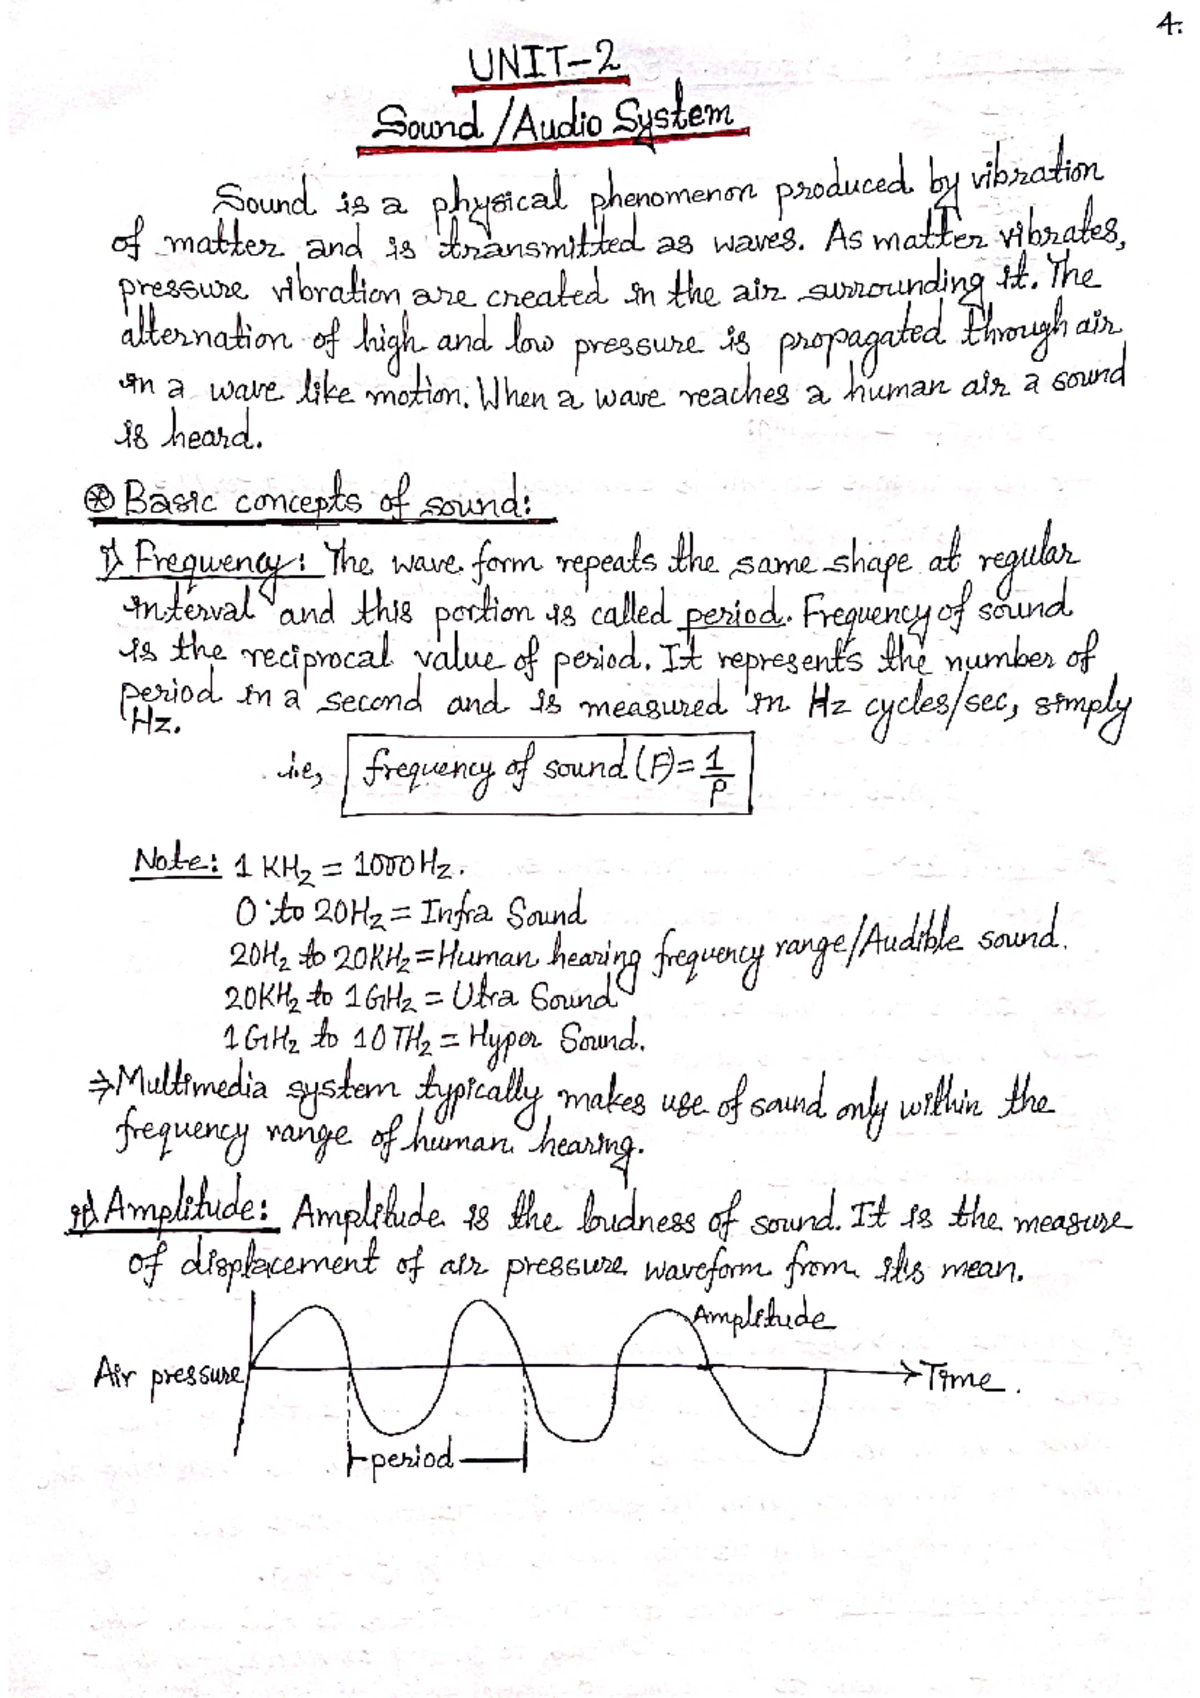 4.
UNIT-2
Sound/Audio System
Sound is a physical phenomenon produced by vibration
of matter and is transmitted as waves. As matter vibrates,
pressure vibration are created in the air surrounding it. The
alternation of high and low pressure is propagated through air
in a wave like motion. When a wave reaches a human air a sound
is heard.
⊛ Basic concepts of sound:
i) Frequency: The wave form repeats the same shape at regular
interval and this portion is called period. Frequency of sound
is the reciprocal value of period. It represents the number of
period in a second and is measured in Hz cycles/sec, simply
Hz.
i.e, frequency of sound (F) = 1/P
Note: 1 KHz = 1000Hz.
0 to 20Hz = Infra Sound
20Hz to 20KHz = Human hearing frequency range/Audible sound.
20KHz to 1GHz = Utra Sound
1GHz to 10THz = Hyper Sound.
⇒ Multimedia system typically makes use of sound only within the
frequency range of human hearing.
ii) Amplitude: Amplitude is the loudness of sound. It is the measure
of displacement of air pressure waveform from it's mean.
Amplitude
Air pressure
Time.
period